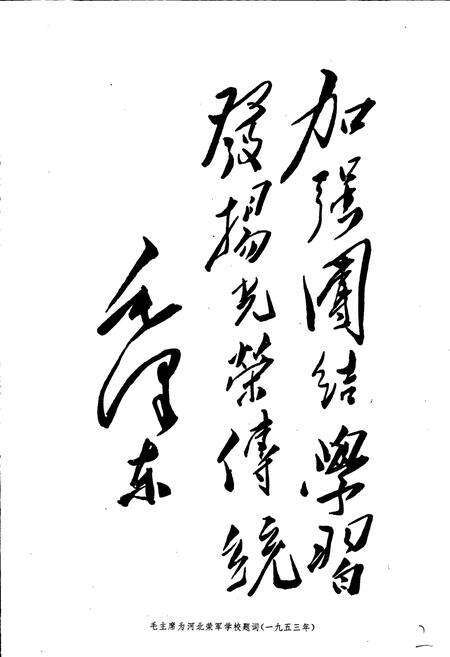 加强團结學習
發揚光榮傳統
毛澤东
毛主席为河北荣军学校题词(一九五三年)